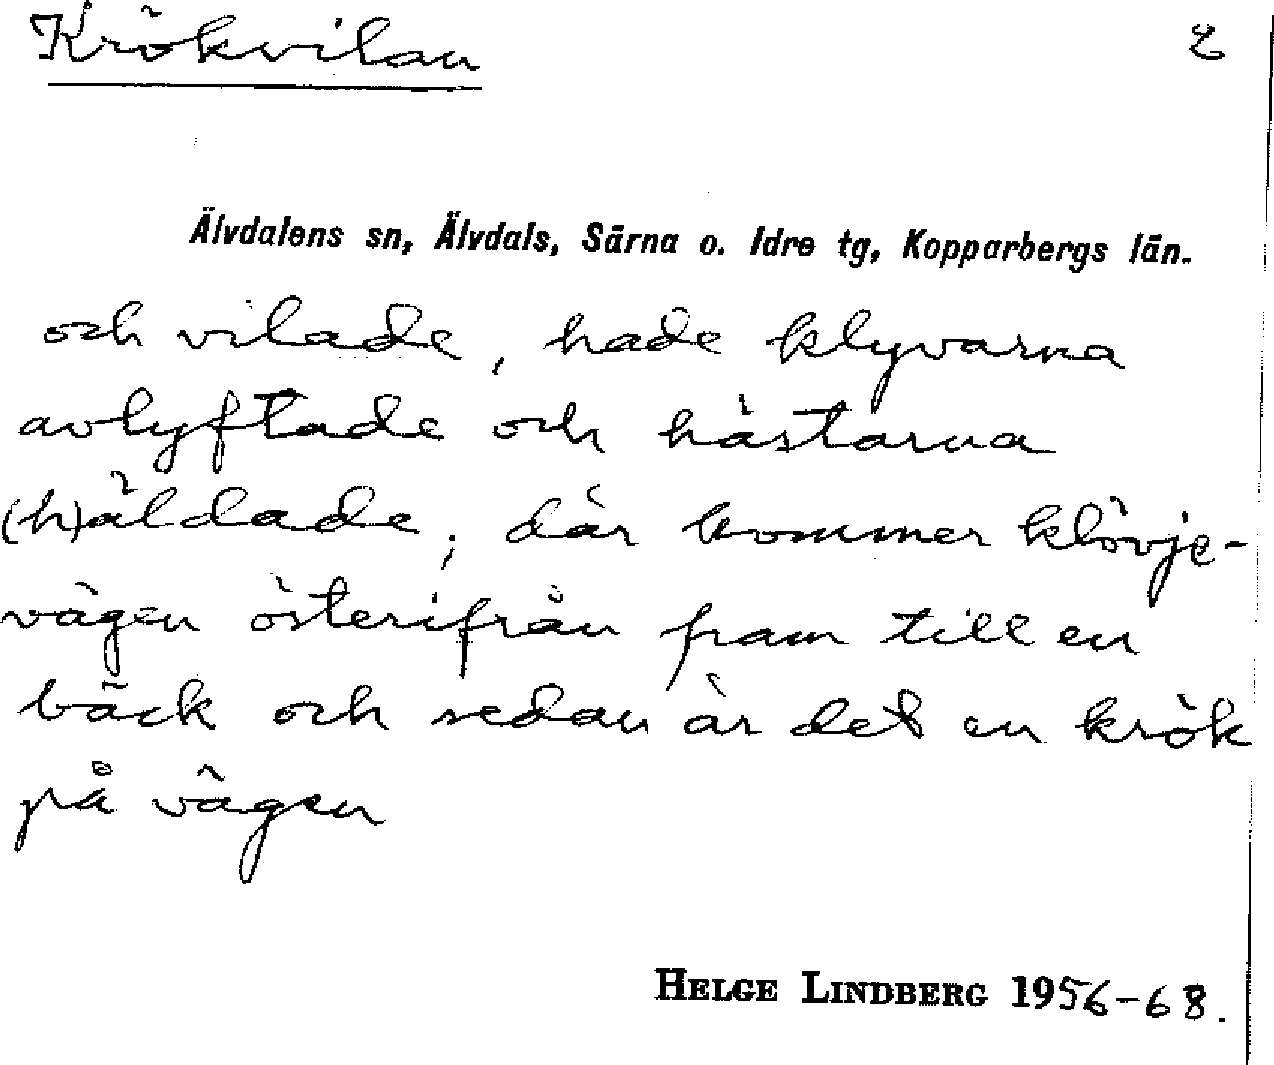 Krökvilan 2
Älvdalens sn, Älvdals, Särna o. Idre tg, Kopparbergs län.
och vilade, hade klyvarna
avlyftade och hästarna
(h)äldade; där kommer klövje-
vägen österifrån fram till en
bäck och sedan är det en krök
på vägen
HELGE LINDBERG 1956-68.